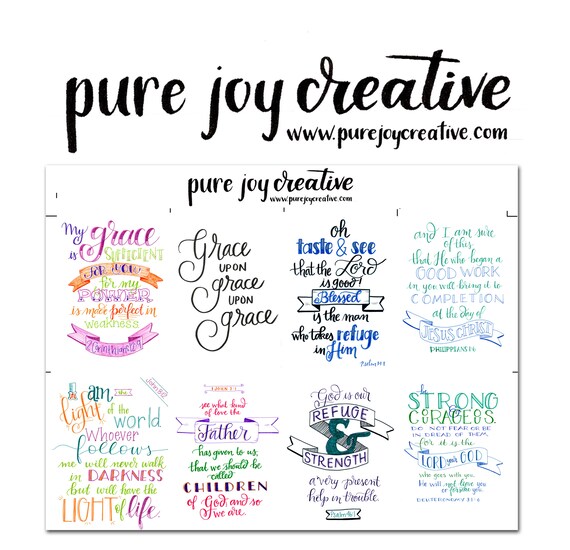 pure joy creative
www.purejoycreative.com
pure joy creative
www.purejoycreative.com
My grace
is SUFFICIENT
FOR YOU
for my
POWER
is made perfect in
weakness
Grace
UPON
grace
UPON
grace
oh
taste & see
that the Lord
is good!
Blessed
is the man
who takes refuge
in Him
Psalm 34:8
and I am sure
of this,
that He who began a
GOOD WORK
in you will bring it to
COMPLETION
at the day of
JESUS CHRIST
PHILIPPIANS 1:6
I am the
light of the
world
Whoever
follows
me will never walk
in DARKNESS
but will have the
LIGHT of life.
1 John 3:1
see what kind
of love the
Father
has given to us,
that we should be
called
CHILDREN
of God; and so
we are.
God is our
REFUGE
&
STRENGTH
a very present
help in trouble.
Psalm 46:1
be
STRONG
&
COURAGEOUS.
DO NOT FEAR OR BE
IN DREAD OF THEM,
for it is the
LORD your GOD
who goes with you.
He will not leave you
or forsake you.
DEUTERONOMY 31:6